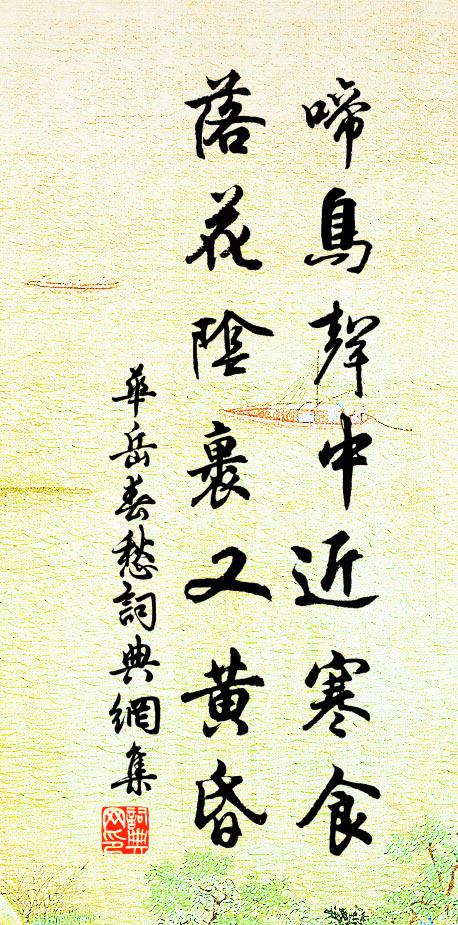 啼鳥聲中近寒食
落花陰裏又黃昏
華岳春愁詞典網集
詞典網印